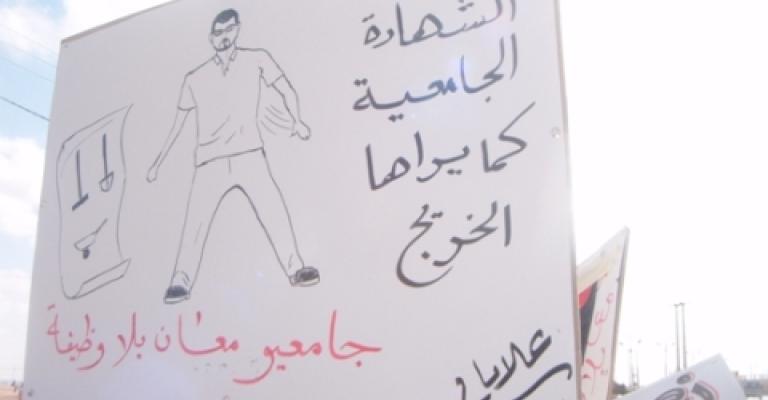 الشهادة
الجامعية
كما يراها
الخريج
جامعيو معان بلا وظيفة